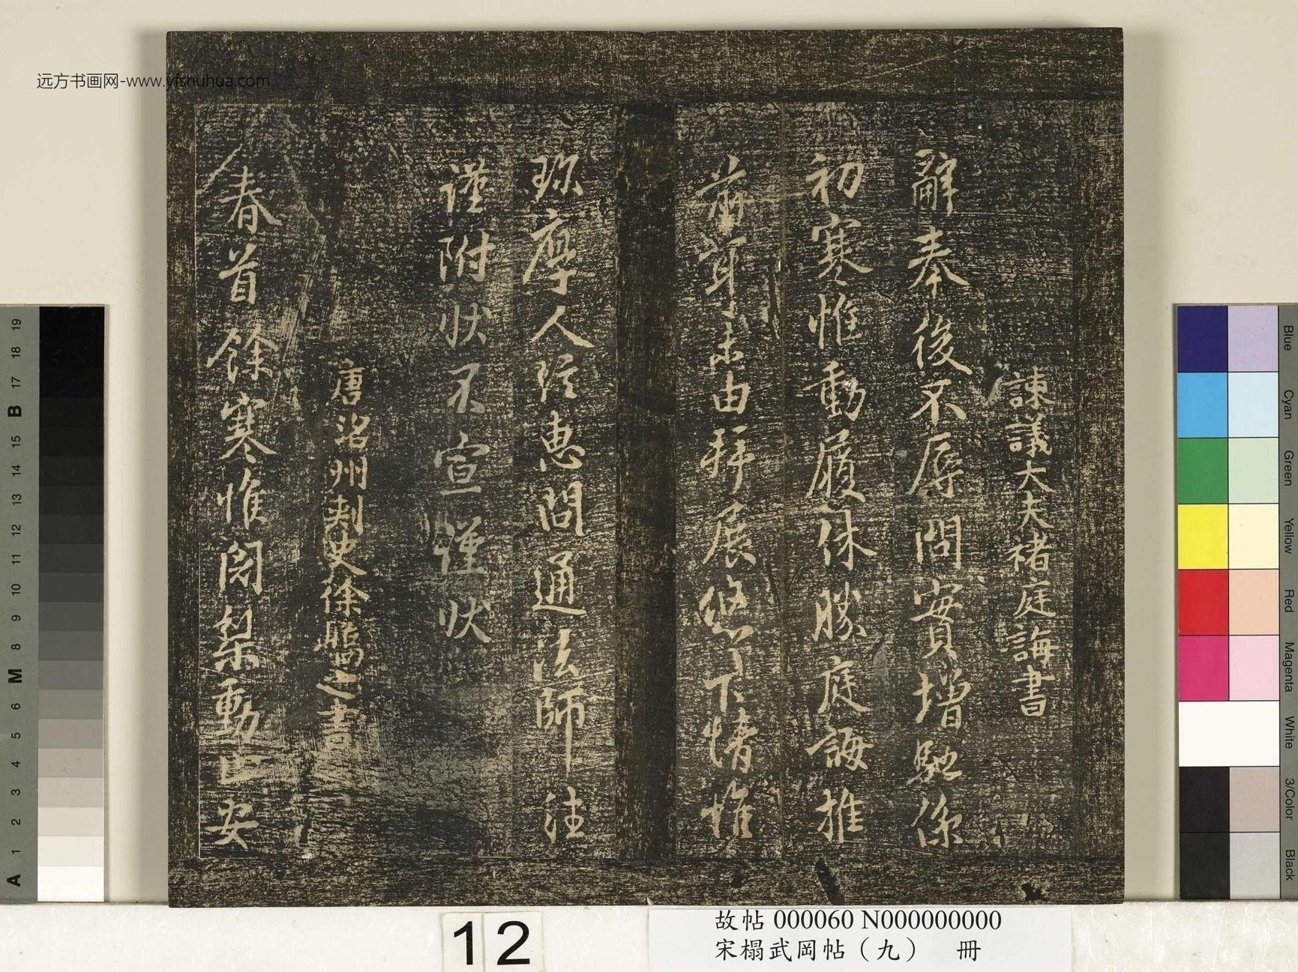 諫議大夫褚庭誨書
辭奉後不辱問實增馳係
初寒惟動履休勝庭誨推
前耳未由拜展悠下情惟
珎摩人往惠問通法師注
謹附狀不宣謹狀
唐洺州刺史徐嶠之書
春首餘寒惟闍梨動止安
远方书画网-www.yfshuhua.com
12
故帖 000060 N000000000
宋榻武岡帖（九） 冊
19
18
17
B
15
14
13
12
11
10
9
8
M
6
5
4
3
2
1
A
Blue
Cyan
Green
Yellow
Red
Magenta
White
3/Color
Black